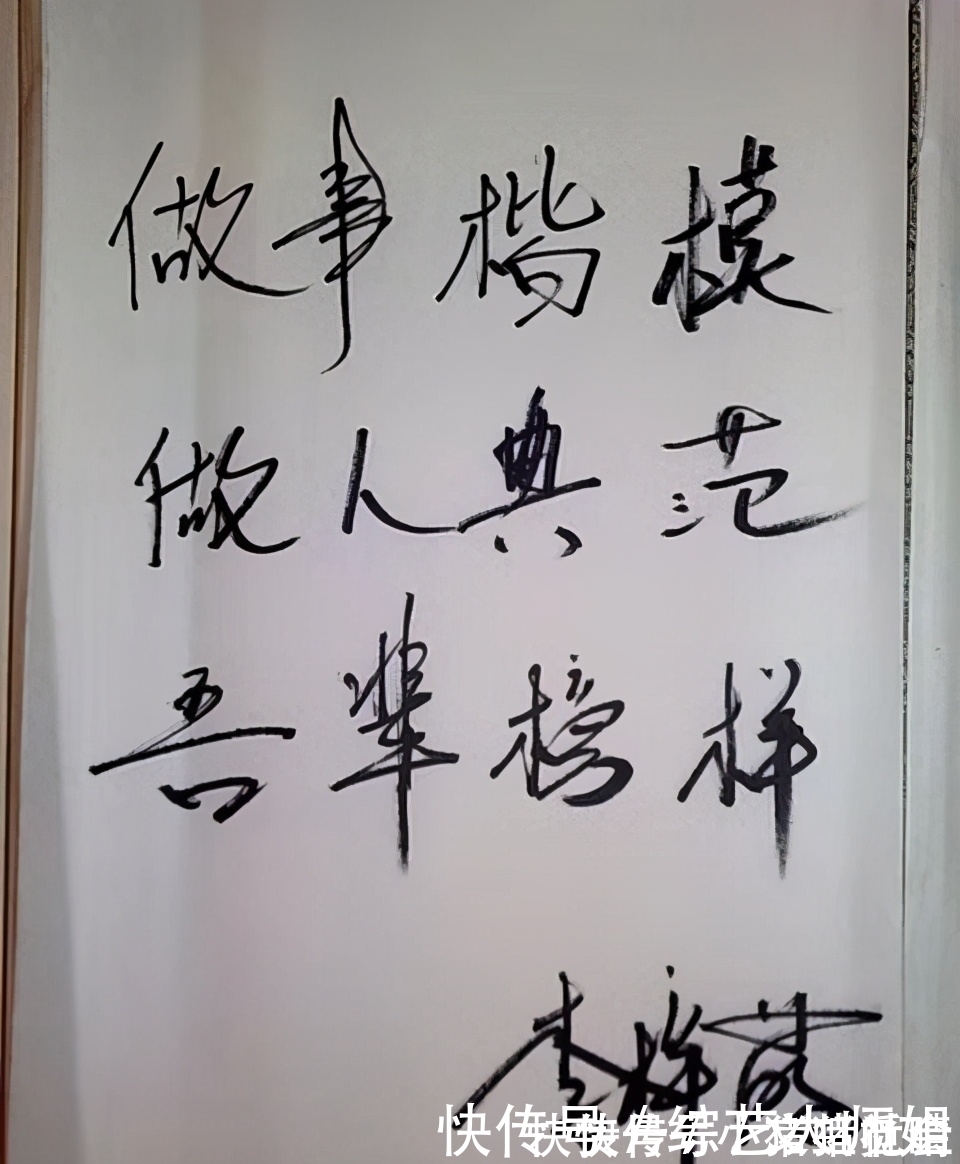 做事楷模
做人典范
吾辈榜样
李梓萌
快传号